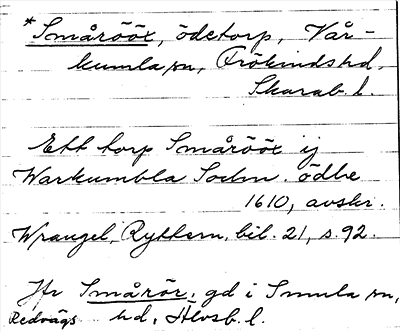 *Smårööx, ödetorp, Vår-
kumla sn, Frökinds hd.
Skarab. l.
Ett torp Smårööx ij
Warkumbla Sochn. ödhe
1610, avskr.
Wrangel, Ryttern, bil. 21, s. 92.
Jfr Smårör, gd i Smula sn,
Redvägs hd, Älvsb. l.